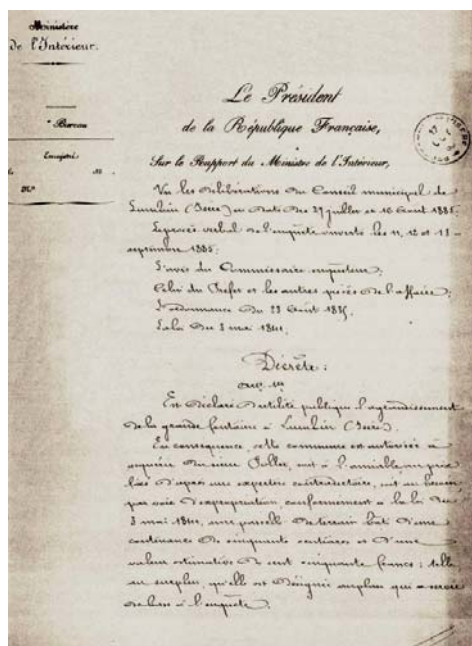 Ministère
de l'Intérieur.
Bureau
Enregistré
N°
Le Président
de la République Française,
Sur le Rapport du Ministre de l'Intérieur,
Vu les délibérations du Conseil municipal de
Lumbin (Isère) en date des 27 juillet et 16 Août 1885;
Le procès verbal de l'enquête ouverte les 11, 12 et 13
septembre 1885;
L'avis du Commissaire enquêteur;
Celui du Préfet et les autres pièces de l'affaire;
L'ordonnance du 23 Août 1835;
La loi du 3 mai 1841;
Décrète:
Art. 1er
Est déclaré d'utilité publique l'agrandissement
de la grande fontaine à Lumbin (Isère).
En conséquence, cette commune est autorisée à
acquérir du sieur soit à l'amiable, au prix
fixé d'après une expertise contradictoire, soit au besoin
par voie d'expropriation, conformément à la loi du
3 mai 1841, une parcelle de terrain bâti d'une
contenance de cinquante centiares et d'une
valeur estimative de cent cinquante francs; telle
au surplus, qu'elle est désignée au plan qui a servi
de base à l'enquête.